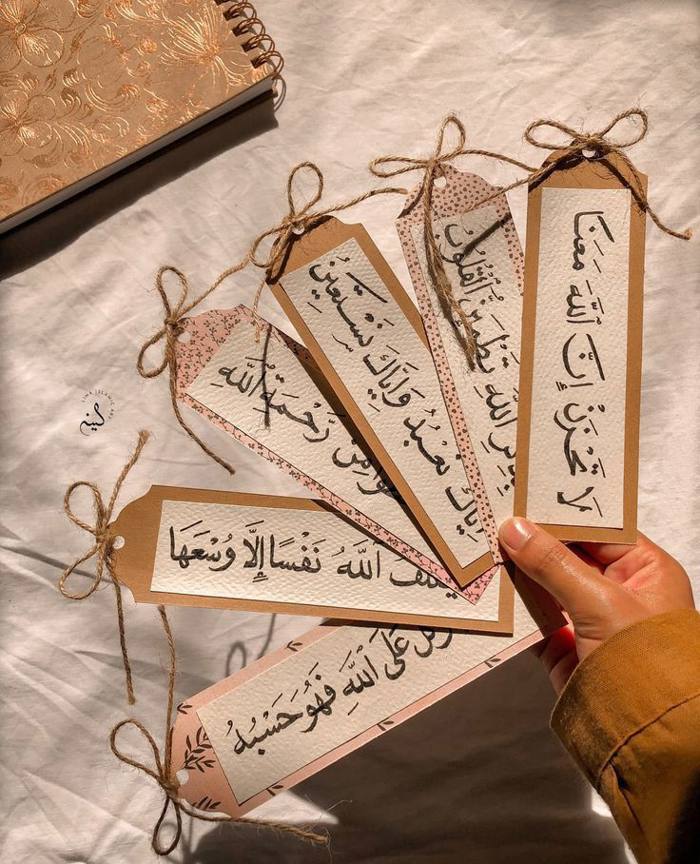 لَا تَحْزَنْ إِنَّ اللهَ مَعَنَا
اللهِ تَطْمَئِنُّ الْقُلُوبُ
اِيَّاكَ نَعْبُدُ وَاِيَّاكَ نَسْتَعِيْنُ
مِنْ رَّحْمَةِ اللهِ
اللهُ نَفْسًا إِلَّا وُسْعَهَا
عَلَى اللهِ فَهُوَ حَسْبُهُ